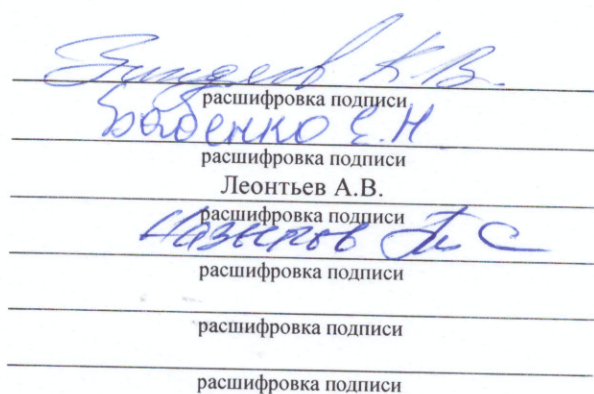 К.В.
расшифровка подписи
Бабенко Е.Н.
расшифровка подписи
Леонтьев А.В.
расшифровка подписи
Назыров С
расшифровка подписи
расшифровка подписи
расшифровка подписи